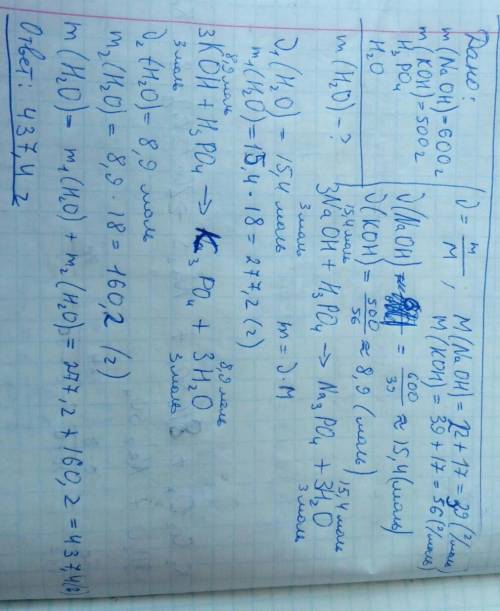 Дано:
m(NaOH)=600г
m(KOH)=500г
H₃PO₄
H₂O
m(H₂O)-?
ν = m/M ; M(NaOH) = 22+17=39(г/моль)
M(KOH) = 39+17=56(г/моль)
ν(NaOH) = 600/39 ≈ 15,4(моль)
ν(KOH) = 500/56 ≈ 8,9 (моль)
15,4 моль 15,4 моль
3NaOH + H₃PO₄ → Na₃PO₄ + 3H₂O
3 моль 3 моль
ν₁(H₂O) = 15,4 моль m = ν·M
m₁(H₂O)=15,4·18=277,2(г)
8,9 моль 8,9 моль
3KOH + H₃PO₄ → K₃PO₄ + 3H₂O
3 моль 3 моль
ν₂(H₂O)= 8,9 моль
m₂(H₂O) = 8,9·18=160,2 (г)
m(H₂O)= m₁(H₂O)+m₂(H₂O)=277,2+160,2=437,4(г)
Ответ: 437,4 г